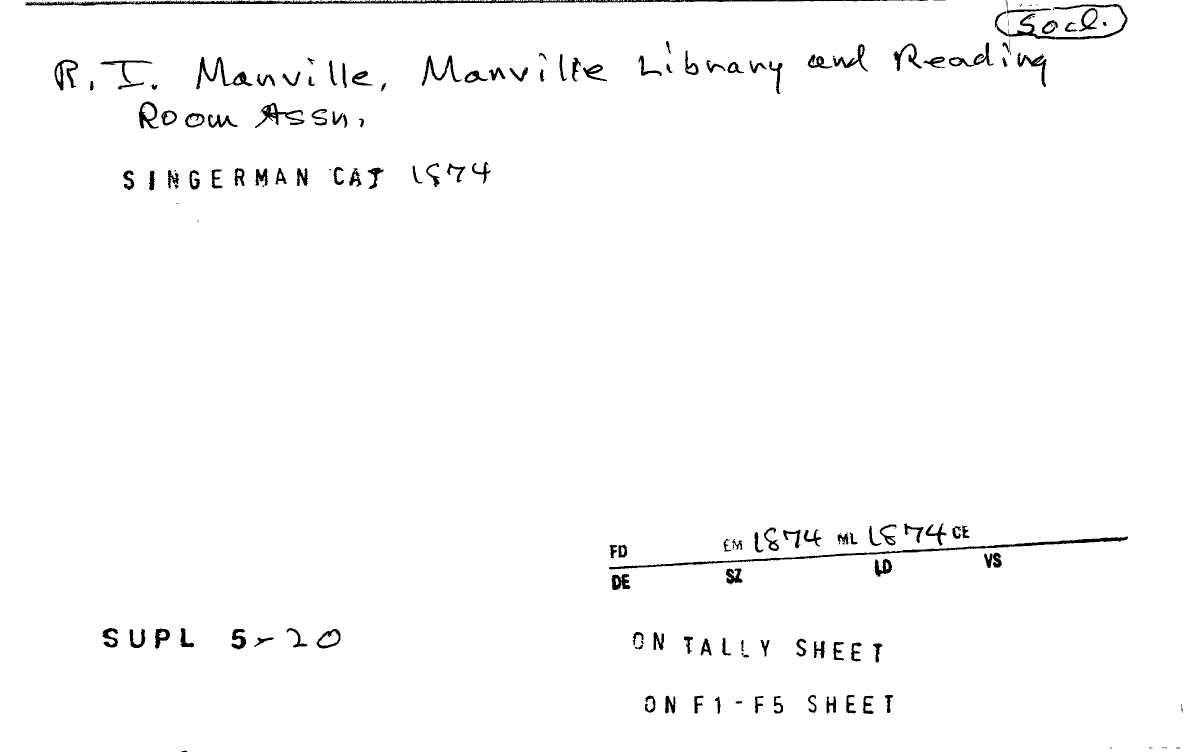 Socl.
R. I. Manville, Manville Library and Reading
Room Assn.
SINGERMAN CAT 1874
FD EM 1874 ML 1874 CE
DE SZ LD VS
SUPL 5-20
ON TALLY SHEET
ON F1-F5 SHEET